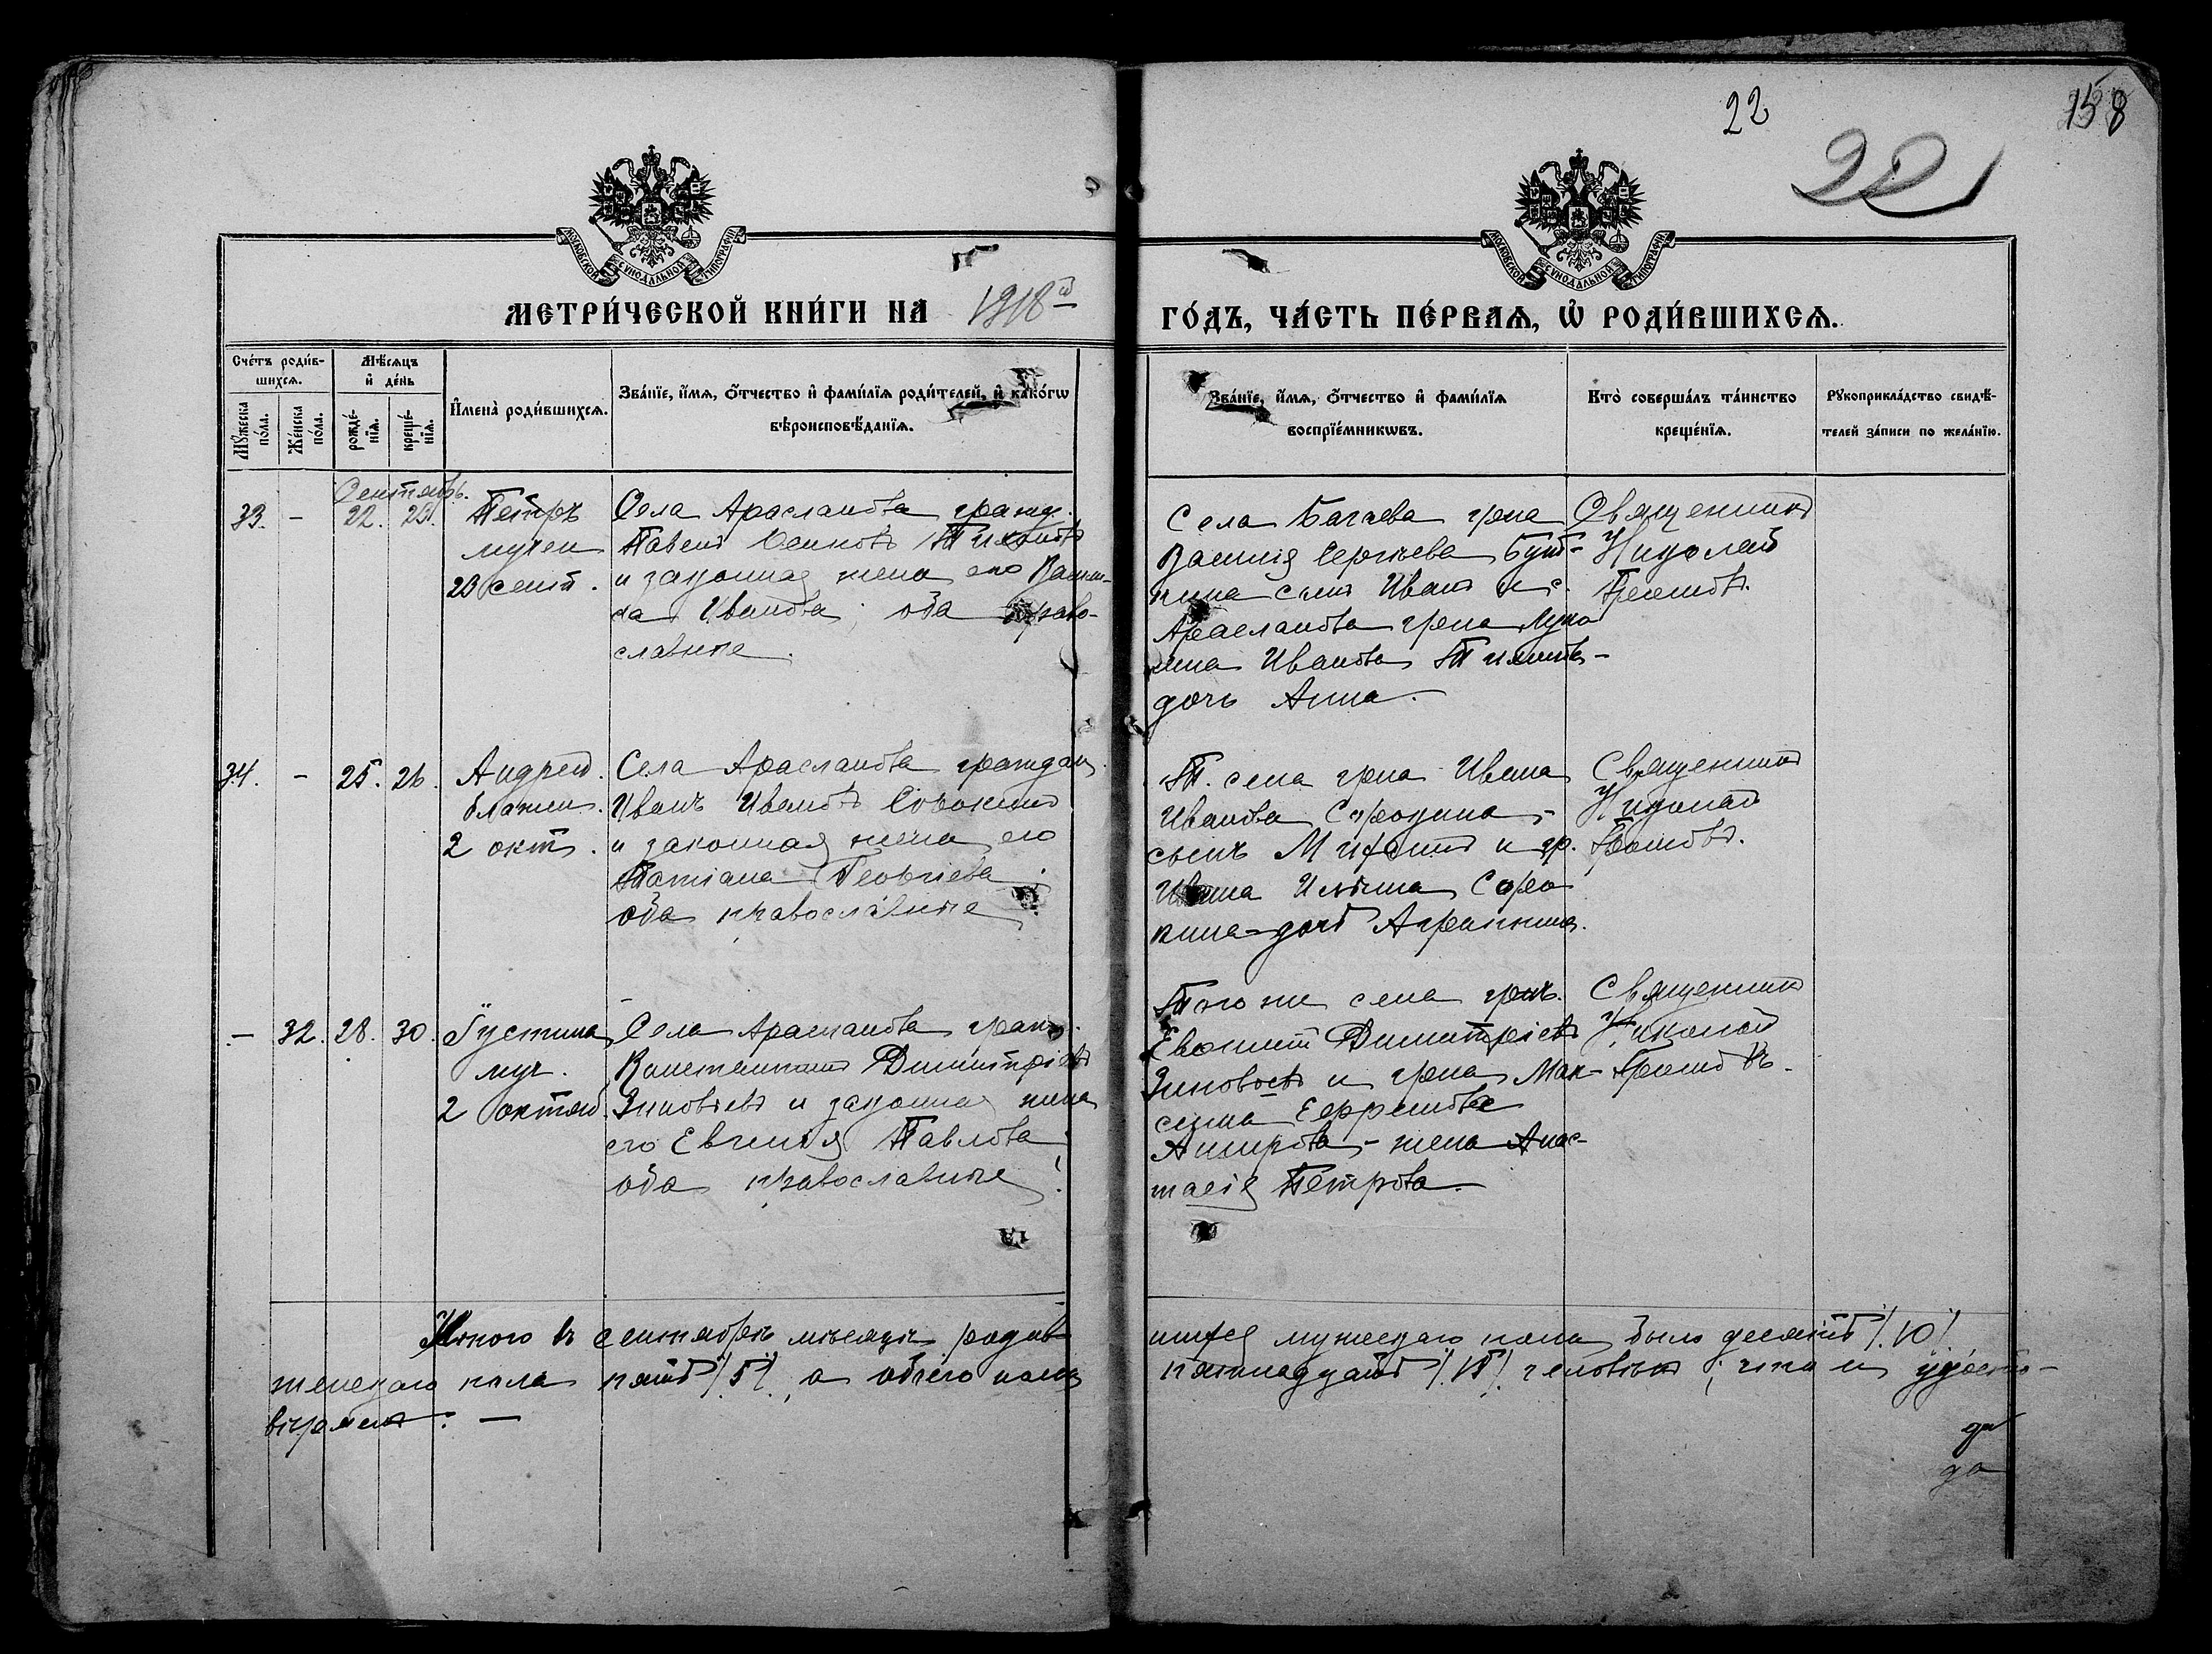 22
158
22
МОСКОВСКОЙ СѴНОДАЛЬНОЙ ТИПОГРАФІИ
МОСКОВСКОЙ СѴНОДАЛЬНОЙ ТИПОГРАФІИ
МЕТРИ́ЧЕСКОЙ КНИ́ГИ НА 1918й ГО́ДЪ, ЧА́СТЬ ПЕ́РВАѦ, Ѡ҆ РОДИ́ВШИХСѦ.
Сче́тъ роди́в-
шихсѧ.
Мѣ́сѧцъ
и҆ де́нь
Мꙋ́жеска
по́ла.
Же́нска
по́ла.
рожде́-
нїѧ.
креще́-
нїѧ.
И҆мена̀ роди́вшихсѧ.
Зва́нїе, и҆́мѧ, ѻ҆́тчество и҆ фами́лїѧ роди́телей, и҆ како́гѡ
вѣроисповѣ́данїѧ.
Зва́нїе, и҆́мѧ, ѻ҆́тчество и҆ фами́лїѧ
воспрїе́мникѡвъ.
Кто̀ соверша́лъ та́инство
креще́нїѧ.
Рꙋкоприкла́дство свидѣ́-
телей за́писи по жела́нїю.
Сентябрь.
33. - 22. 23. Петръ
мучен
23 сент.
Села Арасланова гражд.
Павелъ Тихоновъ
и законная жена его Васи-
са Иванова; оба право-
славные.
Села Багаева грна
Василія Сергѣева Бут-
кина сынъ Иванъ и с.
Арасланова грна Лука
Иванова
дочь Анна.
Священникъ
Николай
34. - 25. 26. Андрей.
блажен.
2 окт.
Села Арасланова граждан.
Иванъ Ивановъ Сорокинъ
и законная жена его
Татіана Георгіева;
оба православные
Т. села грна Ивана
Иванова Сорокина -
сынъ и гр.
Ивана Ильина Соро
кина - дочь Агрипина.
Священникъ
Николай
- 32. 28. 30. Іустина
муч.
2 октяб.
Села Арасланова гражд.
Константинъ Димитріевъ
Зиновьевъ и законная жена
его Евгенія Павлова;
оба православные.
Того же села грнъ.
Димитріевъ
Зиновьевъ и грна Мак-
сима Ефремова
жена Анас-
тасія Петрова.
Священникъ
Николай
Итого въ сентябрѣ мѣсяцѣ родив шихся мужескаго пола было десять /10/
женскаго пола пять /5/, а обоего пола пятнадцать /15/ человѣкъ; что и удосто-
вѣряемъ. -